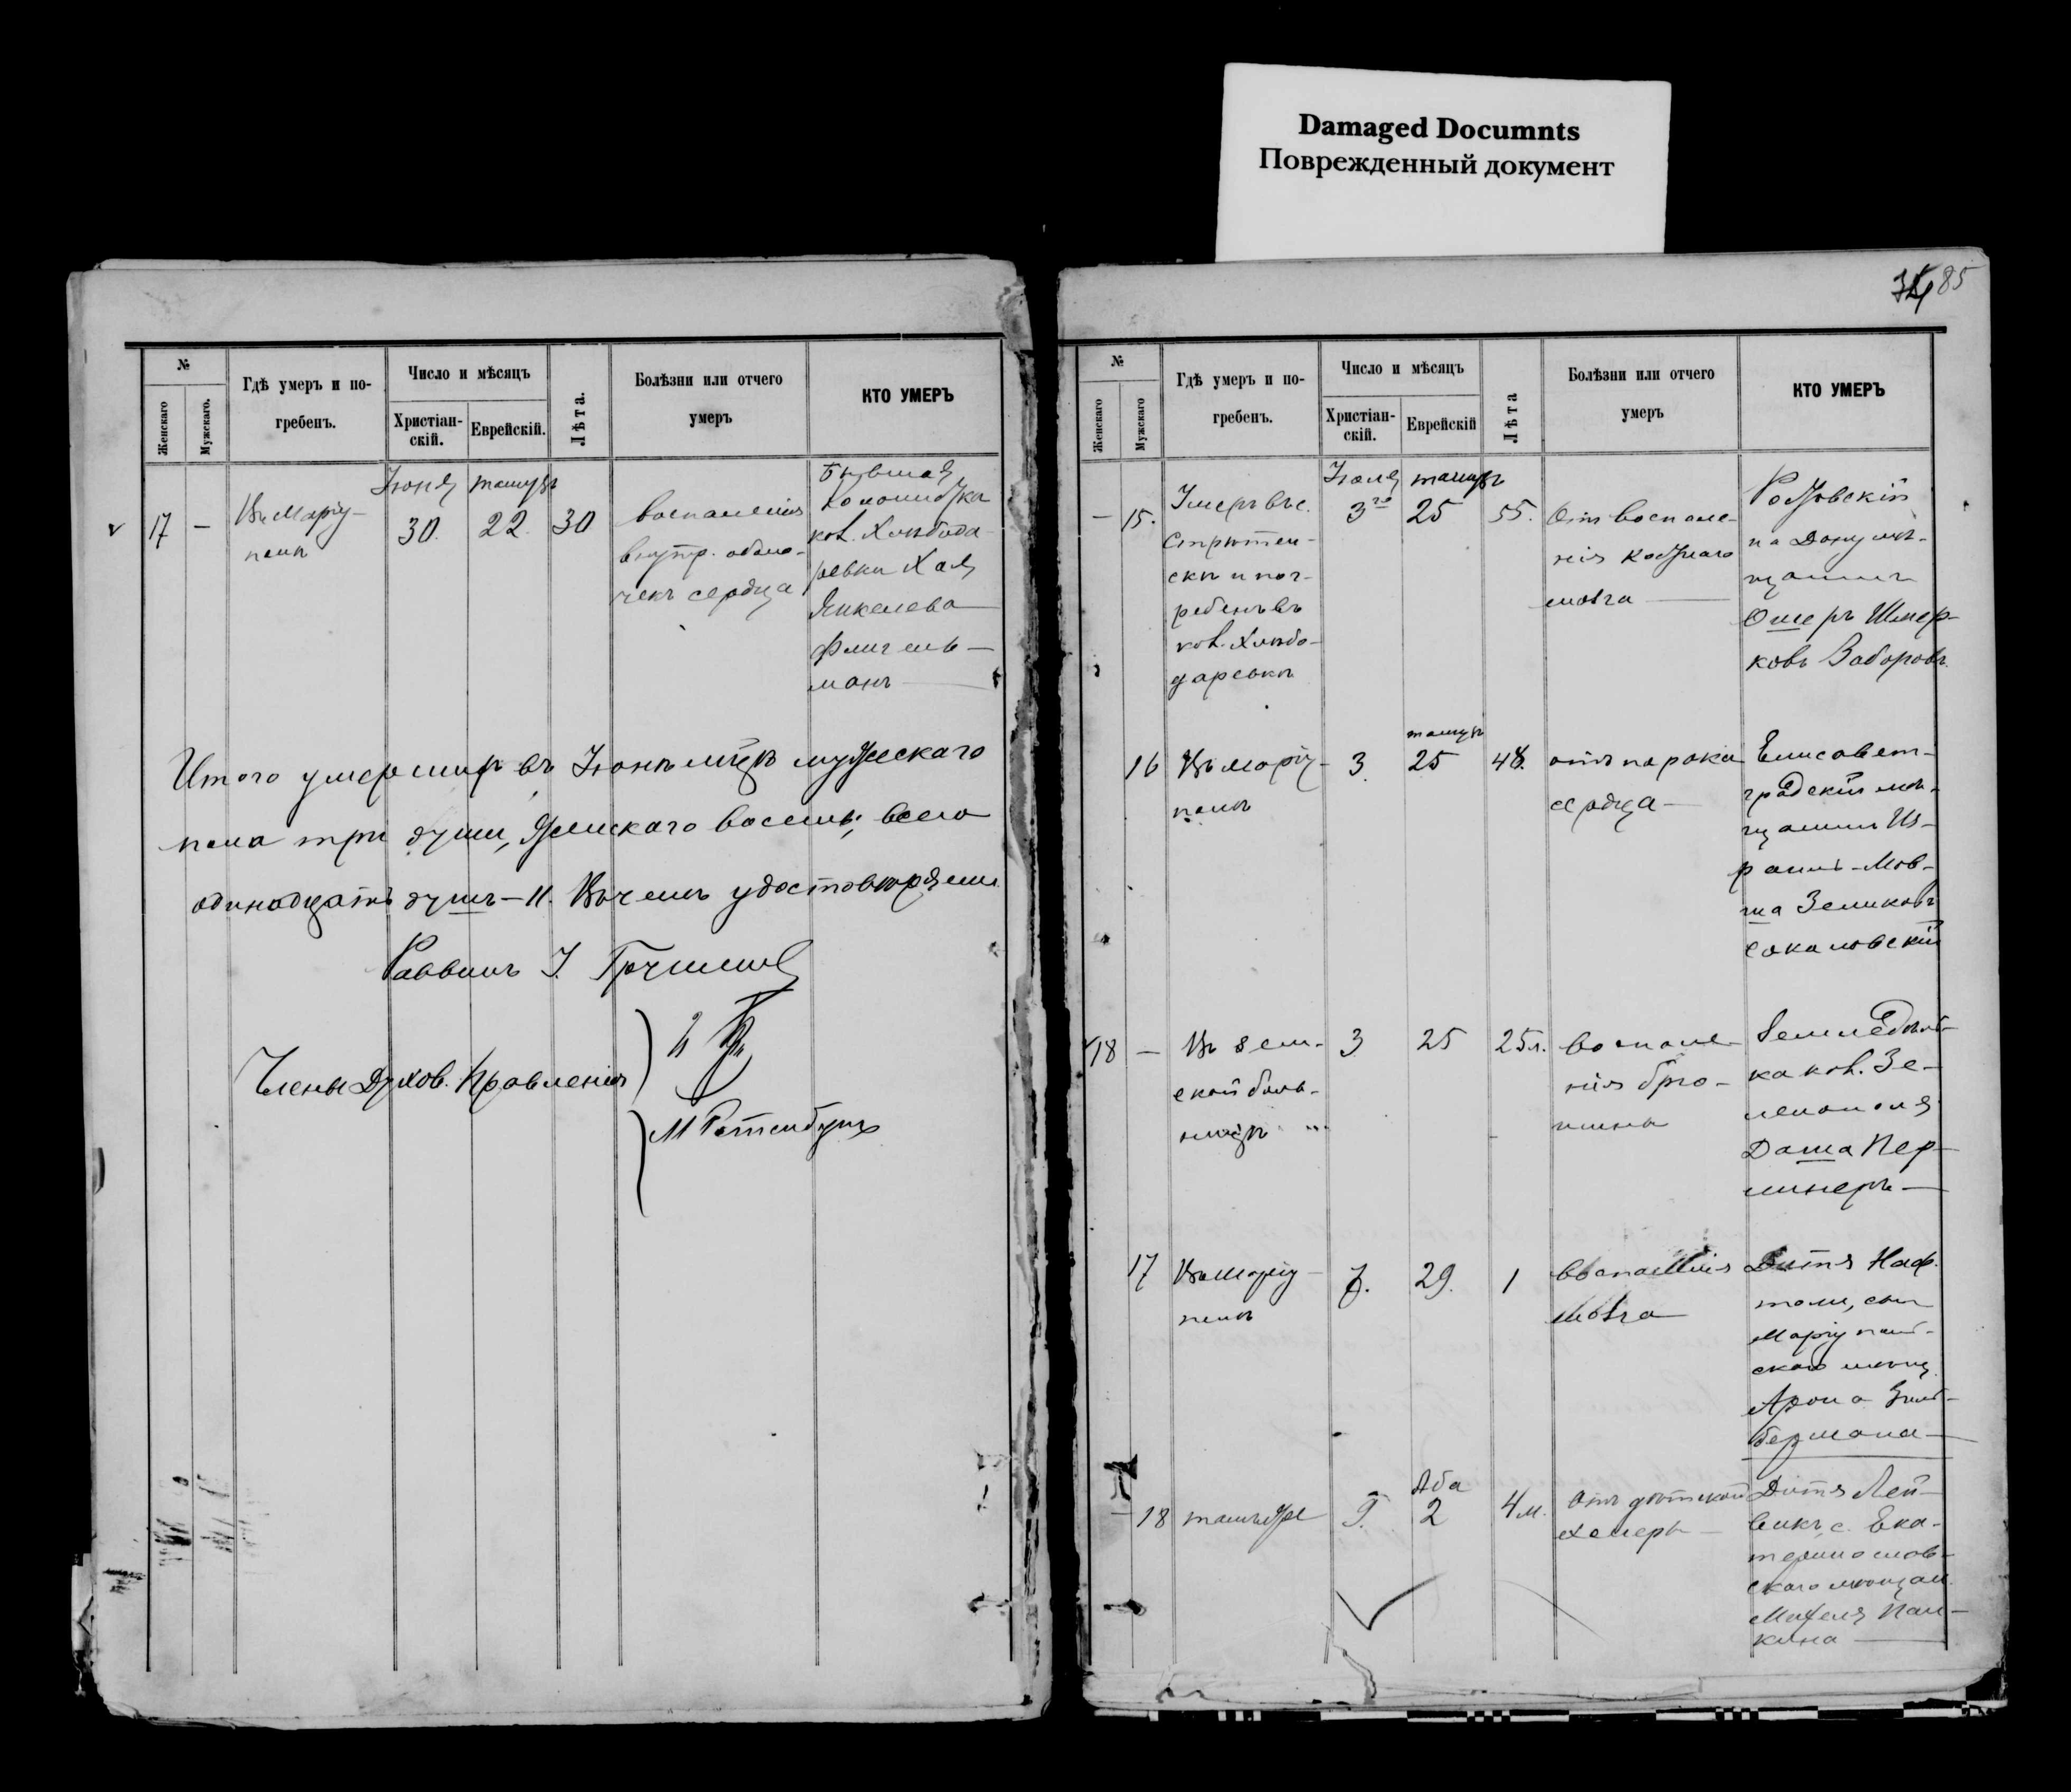 Damaged Documnts
Поврежденный документ
85
№
Женскаго
Мужскаго.
Гдѣ умеръ и по-
гребенъ.
Число и мѣсяцъ
Христіан-
скій.
Еврейскій.
Лѣта.
Болѣзни или отчего
умеръ
КТО УМЕРЪ
Іюня тамузъ
17 —
Въ Маріу-
полѣ
30.
22.
30
воспаленія
внутр. оболо-
чекъ сердца
Бывшая
Колонистка
кол. Хлѣбода-
ровки Хая
Янкелева
Флигель-
манъ
Итого умершихъ въ Іюнѣ мѣсяцѣ мужескаго
пола три души, женскаго восемь, всего
одинадцать душъ — 11. Въ чемъ удостовѣряемъ
Раввинъ І.
Члены Духов. Правленія
М Ротенбургъ
№
Женскаго
Мужскаго
Гдѣ умеръ и по-
гребенъ.
Число и мѣсяцъ
Христіан-
скій.
Еврейскій
Лѣта
Болѣзни или отчего
умеръ
КТО УМЕРЪ
Іюля тамузъ
— 15.
Умеръ въ с.
Стрѣтен-
скѣ и пог-
ребенъ въ
кол. Хлѣбо-
даровкѣ
3го
25
55.
Отъ воспале-
нія костнаго
мозга
Ростовскій
на Дону мѣ-
щанинъ
Ошеръ Шмер-
ковъ Заборовъ.
16
Въ Маріу-
полѣ
3.
тамузъ
25
48.
отъ порока
сердца
Елисавет-
градскій мѣ-
щанинъ Из-
раиль-Мов-
ша Зеликовъ
Сокаловскій
18 —
Въ зем-
ской боль-
ницѣ
3
25
25л.
воспале-
нія брю-
шины
Земледѣл-
ка кол. Зе-
ленополя
Даша Пер-
линеръ
17
Въ Маріу-
полѣ
7.
29.
1
воспаленія
мозга
Дитя Наф-
тали, сын
Маріуполь-
скаго мѣщ.
Арона Зиль-
бермана
— 18
тамъ же
9.
Аба
2
4 м.
Отъ дѣтской
холеры
Дитя Лей-
викъ, с. Ека-
теринослав-
скаго мѣщан.
Мателя Пал-
кина